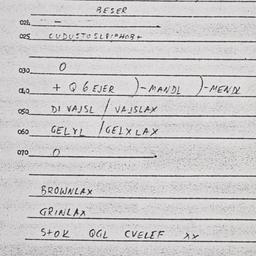 BESER
024 -
025
030 O
040 + Q 6 EJER )-MANDL )-MENDL
050 DI VAJSL / VAJSLAX
060 GELXL / GELXLAX
070 O
BROWNLAX
GRINLAX
StOK QGL CVELEF XX